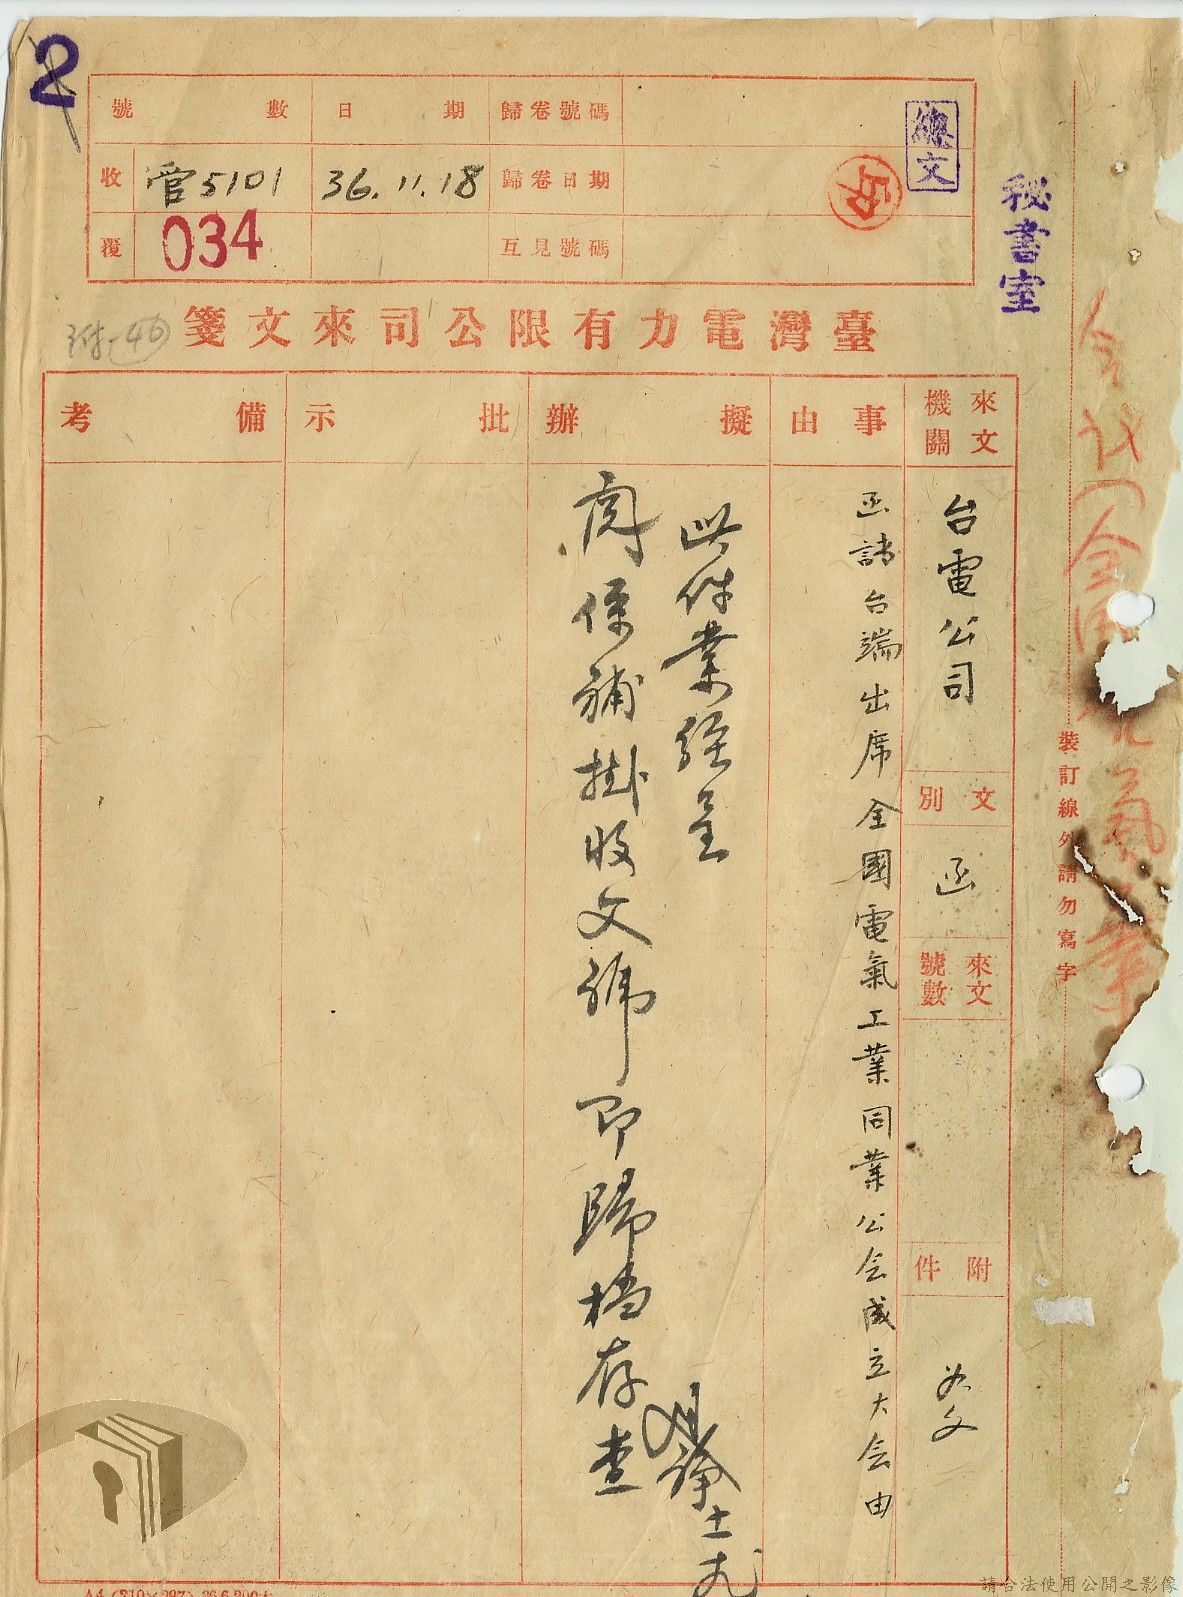 2
號數
日期
歸卷號碼
收
管5101
36.11.18
歸卷日期
覆
034
互見號碼
總文
秘書室
附-46
臺灣電力有限公司來文箋
來文機關
事由
擬辦
批示
備考
台電公司
文別
函
來文號數
附件
如文
函請台端出席全國電氣工業同業公会成立大会由
此件業經呈
閱僅補掛收文號即歸檔存查
裝訂線外請勿寫字
請合法使用公開之影像